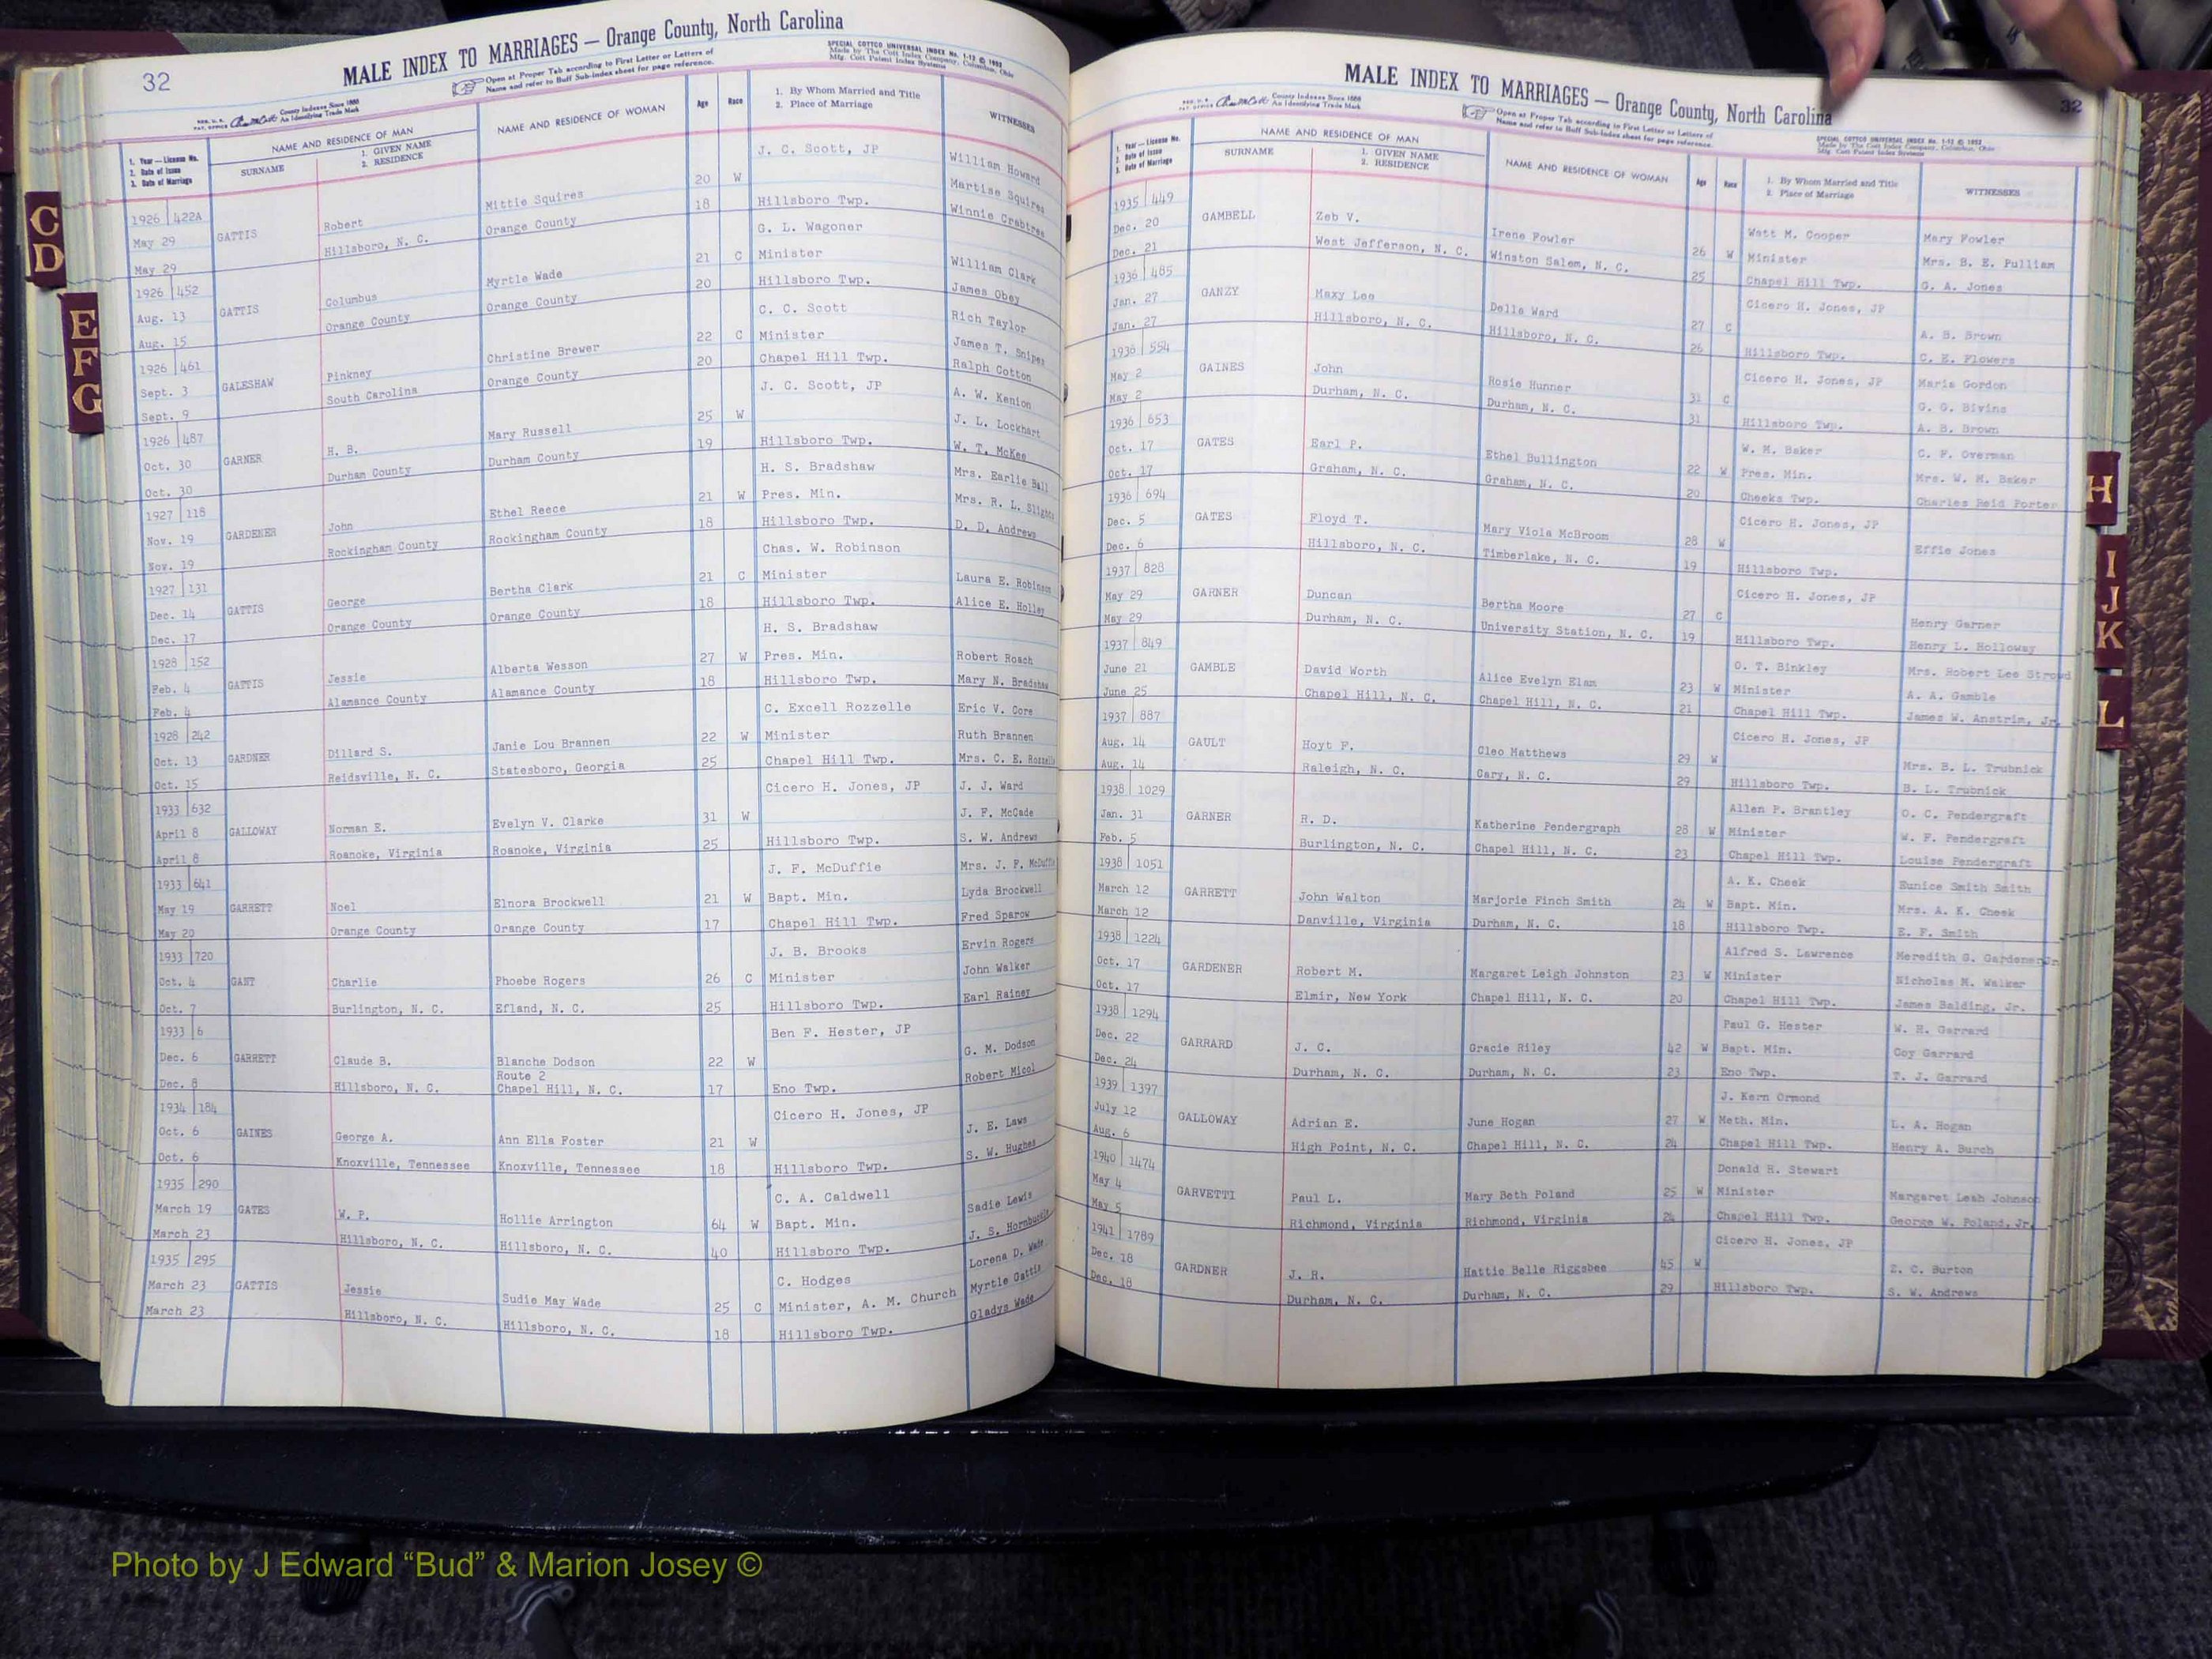 32
MALE INDEX TO MARRIAGES — Orange County, North Carolina
Open at Proper Tab according to First Letter or Letters of
Name and refer to Buff Sub-index sheet for page reference.
SPECIAL COTTCO UNIVERSAL INDEX No. 1-12 © 1952
Made by The Cott Index Company, Columbus, Ohio
Mfg. Cott Patent Index Systems
County Indexes Since 1888
An Identifying Trade Mark
1. Year — License No.
2. Date of Issue
3. Date of Marriage
NAME AND RESIDENCE OF MAN
SURNAME
1. GIVEN NAME
2. RESIDENCE
NAME AND RESIDENCE OF WOMAN
Age
Race
1. By Whom Married and Title
2. Place of Marriage
WITNESSES
1926 422A GATTIS Robert Mittie Squires 20 W J. C. Scott, JP William Howard
May 29 Hillsboro, N. C. Orange County 18 Hillsboro Twp. Martise Squires
May 29 Winnie Crabtree
1926 452 GATTIS Columbus Myrtle Wade 21 C G. L. Wagoner William Clark
Aug. 13 Orange County Orange County 20 Minister James Obey
Aug. 15 Hillsboro Twp. Rich Taylor
1926 461 GALESHAW Pinkney Christine Brewer 22 C C. C. Scott James T. Snipes
Sept. 3 South Carolina Orange County 20 Minister Ralph Cotton
Sept. 9 Chapel Hill Twp. A. W. Kenion
1926 487 GARNER H. B. Mary Russell 25 W J. C. Scott, JP J. L. Lockhart
Oct. 30 Durham County Durham County 19 Hillsboro Twp. W. T. McKee
Oct. 30 Mrs. Earlie Ball
1927 118 GARDENER John Ethel Reece 21 W H. S. Bradshaw Mrs. R. L. Slights
Nov. 19 Rockingham County Rockingham County 18 Pres. Min. D. D. Andrews
Nov. 19 Hillsboro Twp.
1927 131 GATTIS George Bertha Clark 21 C Chas. W. Robinson Laura E. Robinson
Dec. 14 Orange County Orange County 18 Minister Alice E. Holley
Dec. 17 Hillsboro Twp.
1928 152 GATTIS Jessie Alberta Wesson 27 W H. S. Bradshaw Robert Roach
Feb. 4 Alamance County Alamance County 18 Pres. Min. Mary N. Bradshaw
Feb. 4 Hillsboro Twp.
1928 242 GARDNER Dillard S. Janie Lou Brannen 22 W C. Excell Rozzelle Eric V. Core
Oct. 13 Reidsville, N. C. Statesboro, Georgia 25 Minister Ruth Brannen
Oct. 15 Chapel Hill Twp. Mrs. C. E.
1933 632 GALLOWAY Norman E. Evelyn V. Clarke 31 W Cicero H. Jones, JP J. J. Ward
April 8 Roanoke, Virginia Roanoke, Virginia 25 J. F. McCade
April 8 Hillsboro Twp. S. W. Andrews
1933 641 GARRETT Noel Elnora Brockwell 21 W J. F. McDuffie Mrs. J. F. McDuffie
May 19 Orange County Orange County 17 Bapt. Min. Lyda Brockwell
May 20 Chapel Hill Twp. Fred Sparow
1933 720 GANT Charlie Phoebe Rogers 26 C J. B. Brooks Ervin Rogers
Oct. 4 Burlington, N. C. Efland, N. C. 25 Minister John Walker
Oct. 7 Hillsboro Twp. Earl Rainey
1933 6 GARRETT Claude B. Blanche Dodson 22 W Ben F. Hester, JP
Dec. 6 Route 2 G. M. Dodson
Dec. 8 Hillsboro, N. C. Chapel Hill, N. C. 17 Eno Twp. Robert Micol
1934 184 GAINES George A. Ann Ella Foster 21 W Cicero H. Jones, JP
Oct. 6 J. E. Laws
Oct. 6 Knoxville, Tennessee Knoxville, Tennessee 18 Hillsboro Twp. S. W. Hughes
1935 290 GATES W. P. Hollie Arrington 64 W C. A. Caldwell
March 19 Bapt. Min. Sadie Lewis
March 23 Hillsboro, N. C. Hillsboro, N. C. 40 Hillsboro Twp. J. S.
1935 295 GATTIS Jessie Sudie May Wade 25 C C. Hodges Lorena D. Wade
March 23 Minister, A. M. Church Myrtle Gattis
March 23 Hillsboro, N. C. Hillsboro, N. C. 18 Hillsboro Twp. Gladys Wade
MALE INDEX TO MARRIAGES — Orange County, North Carolina
32
County Indexes Since 1888
An Identifying Trade Mark
Open at Proper Tab according to First Letter or Letters of
Name and refer to Buff Sub-index sheet for page reference.
SPECIAL COTTCO UNIVERSAL INDEX No. 1-12 © 1952
Made by The Cott Index Company, Columbus, Ohio
Mfg. Cott Patent Index Systems
1. Year — License No.
2. Date of Issue
3. Date of Marriage
NAME AND RESIDENCE OF MAN
SURNAME
1. GIVEN NAME
2. RESIDENCE
NAME AND RESIDENCE OF WOMAN
Age
Race
1. By Whom Married and Title
2. Place of Marriage
WITNESSES
1935 449 GAMBELL Zeb V. Irene Fowler 26 W Watt M. Cooper Mary Fowler
Dec. 20 Minister Mrs. B. E. Pulliam
Dec. 21 West Jefferson, N. C. Winston Salem, N. C. 25 Chapel Hill Twp. G. A. Jones
1936 485 GANZY Maxy Lee Della Ward 27 C Cicero H. Jones, JP
Jan. 27 A. B. Brown
Jan. 27 Hillsboro, N. C. Hillsboro, N. C. 26 Hillsboro Twp. C. E. Flowers
1936 554 GAINES John Rosie Hunner 31 C Cicero H. Jones, JP Maria Gordon
May 2 G. G. Bivins
May 2 Durham, N. C. Durham, N. C. 31 Hillsboro Twp. A. B. Brown
1936 653 GATES Earl P. Ethel Bullington 22 W W. M. Baker C. F. Overman
Oct. 17 Pres. Min. Mrs. W. M. Baker
Oct. 17 Graham, N. C. Graham, N. C. 20 Cheeks Twp. Charles Reid Porter
1936 694 GATES Floyd T. Mary Viola McBroom 28 W Cicero H. Jones, JP
Dec. 5 Effie Jones
Dec. 6 Hillsboro, N. C. Timberlake, N. C. 19 Hillsboro Twp.
1937 828 GARNER Duncan Bertha Moore 27 C Cicero H. Jones, JP
May 29 Henry Garner
May 29 Durham, N. C. University Station, N. C. 19 Hillsboro Twp. Henry L. Holloway
1937 849 GAMBLE David Worth Alice Evelyn Elam 23 W O. T. Binkley Mrs. Robert Lee Stroud
June 21 Minister A. A. Gamble
June 25 Chapel Hill, N. C. Chapel Hill, N. C. 21 Chapel Hill Twp. James W. Anstrim, Jr.
1937 887 GAULT Hoyt F. Cleo Matthews 29 W Cicero H. Jones, JP
Aug. 14 Mrs. B. L. Trubnick
Aug. 14 Raleigh, N. C. Cary, N. C. 29 Hillsboro Twp. B. L. Trubnick
1938 1029 GARNER R. D. Katherine Pendergraph 28 W Allen P. Brantley O. C. Pendergraft
Jan. 31 Minister W. F. Pendergraft
Feb. 5 Burlington, N. C. Chapel Hill, N. C. 23 Chapel Hill Twp. Louise Pendergraft
1938 1051 GARRETT John Walton Marjorie Finch Smith 24 W A. K. Cheek Eunice Smith Smith
March 12 Bapt. Min. Mrs. A. K. Cheek
March 12 Danville, Virginia Durham, N. C. 18 Hillsboro Twp. E. F. Smith
1938 1224 GARDENER Robert M. Margaret Leigh Johnston 23 W Alfred S. Lawrence Meredith G. Gardener Jr
Oct. 17 Minister Nicholas M. Walker
Oct. 17 Elmir, New York Chapel Hill, N. C. 20 Chapel Hill Twp. James Balding, Jr.
1938 1294 GARRARD J. C. Gracie Riley 42 W Paul G. Hester W. H. Garrard
Dec. 22 Bapt. Min. Coy Garrard
Dec. 24 Durham, N. C. Durham, N. C. 23 Eno Twp. T. J. Garrard
1939 1397 GALLOWAY Adrian E. June Hogan 27 W J. Kern Ormond
July 12 Meth. Min. L. A. Hogan
Aug. 6 High Point, N. C. Chapel Hill, N. C. 24 Chapel Hill Twp. Henry A. Burch
1940 1474 GARVETTI Paul L. Mary Beth Poland 25 W Donald H. Stewart
May 4 Minister Margaret Leah Johnson
May 5 Richmond, Virginia Richmond, Virginia 24 Chapel Hill Twp. George W. Poland, Jr.
1941 1789 GARDNER J. R. Hattie Belle Riggsbee 45 W Cicero H. Jones, JP
Dec. 18 Z. C. Burton
Dec. 18 Durham, N. C. Durham, N. C. 29 Hillsboro Twp. S. W. Andrews
C
D
E
F
G
H
I
J
K
L
Photo by J Edward “Bud” & Marion Josey ©